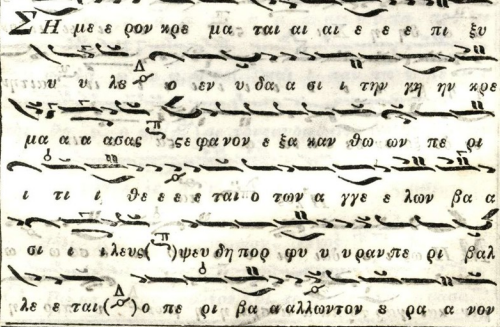 ΣΗ με ε ρον κρε μα ται αι αι ε ε ε πι ξυ
υ υ λε ο εν υ δα α σι ι την γη ην κρε
μα α α ασας ςε φα νον ε ξα καν θω ων πε ρι
ι τι ι θε ε ε ε ται ο των α γγε ε λων βα α
σι ι ι λευς ( ) ψευ δη πορ φυ υ υ ραν πε ρι βαλ
λε ε ται ( ) ο πε ρι βα α αλλων τον ε ρα α νον